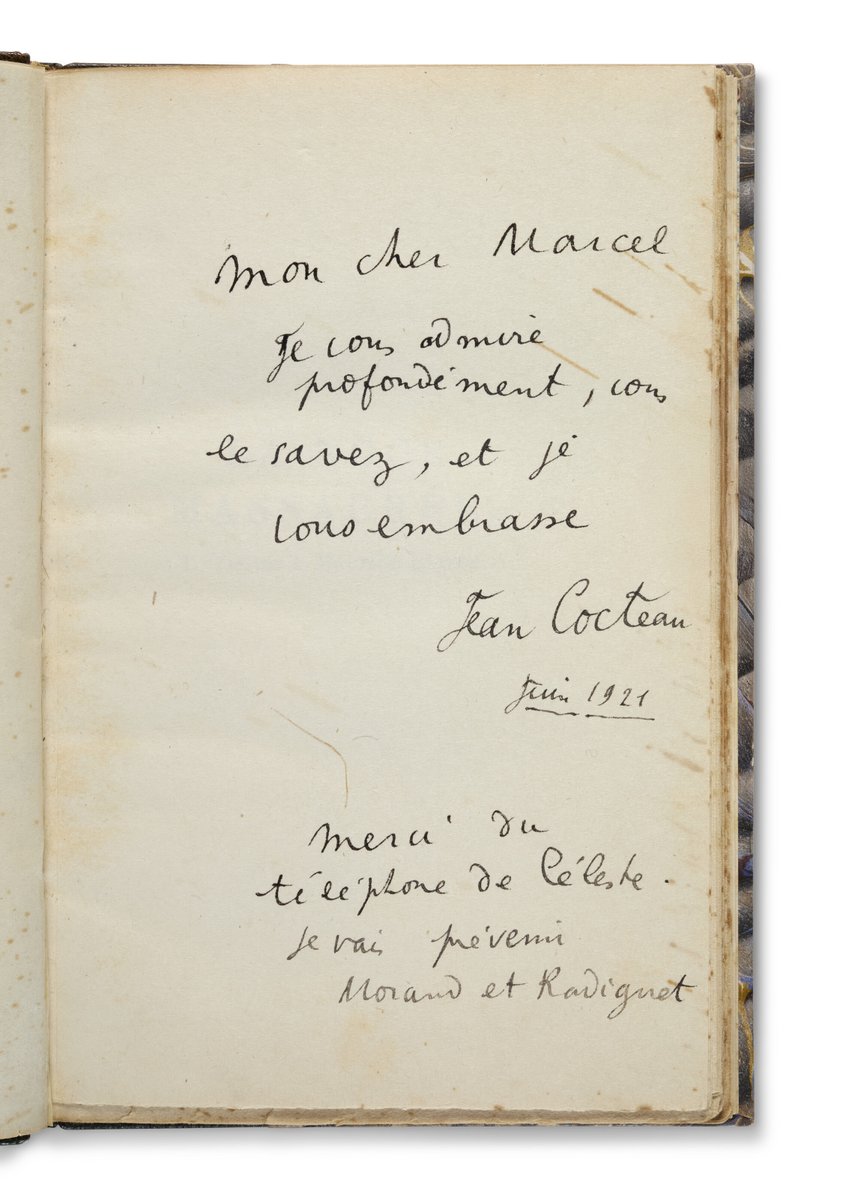 Mon cher Marcel
Je vous admire
profondément, vous
le savez, et je
vous embrasse
Jean Cocteau
Juin 1921
Merci du
téléphone de Céleste.
Je vais prévenir
Morand et Radiguet